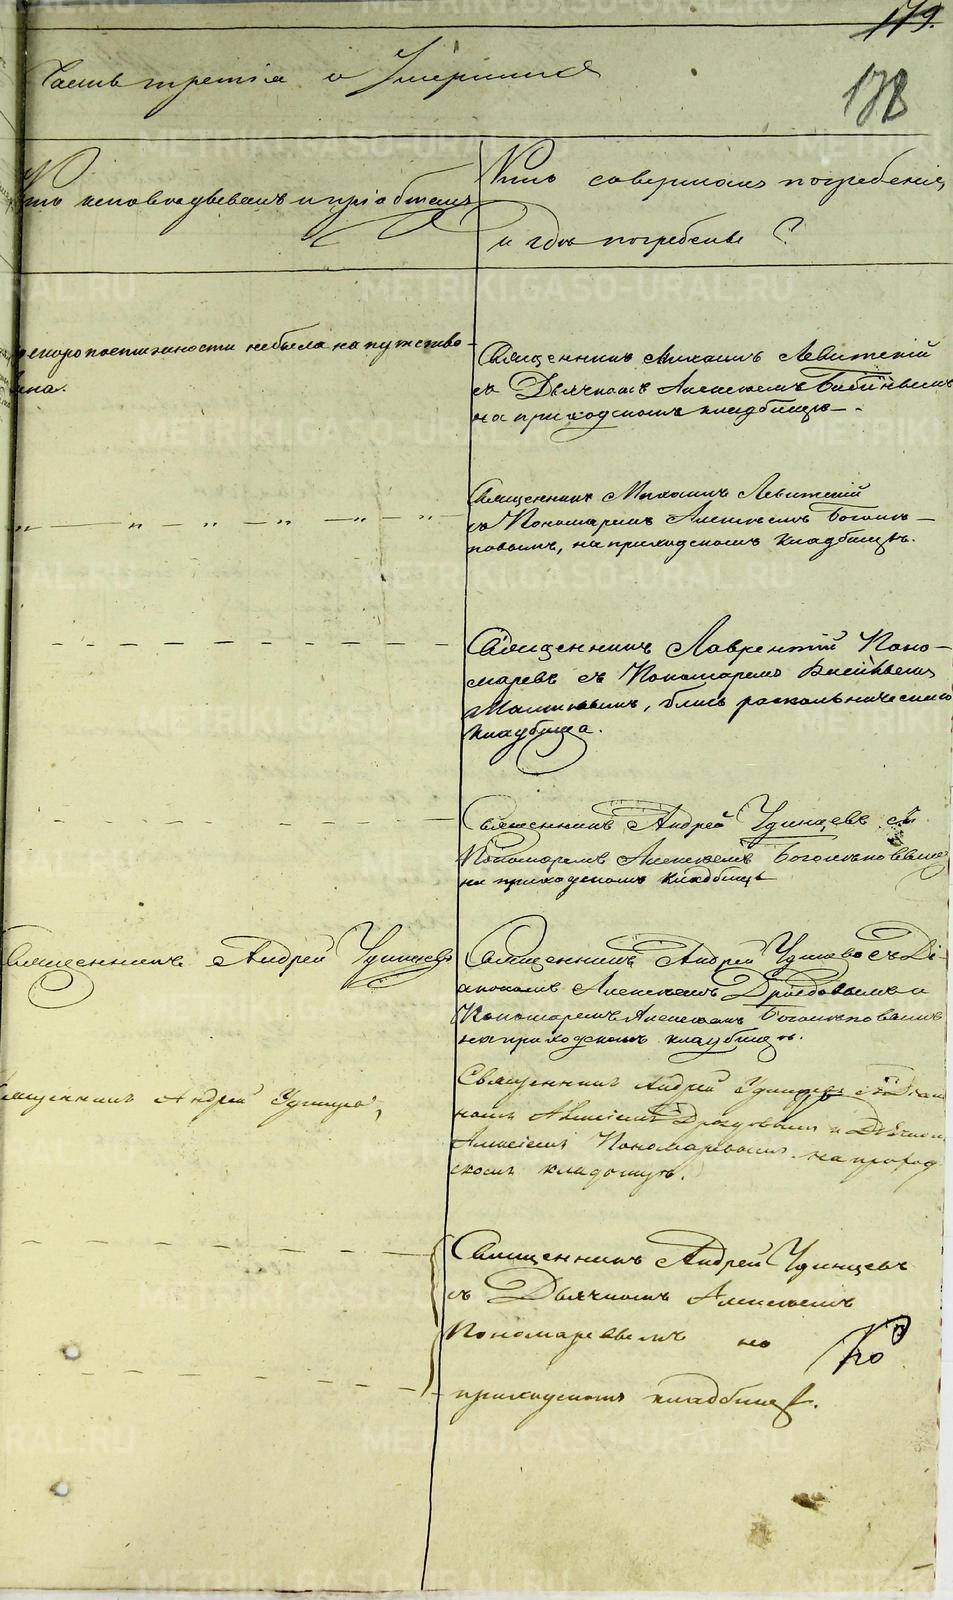 179.
178
Часть третія о Умершихъ
Кто исповѣдывалъ и пріобщалъ
Кто совершалъ погребеніе
и гдѣ погребены?
скоропостижности небыла напутство-
вана.
Священникъ Михаилъ Левитскій
съ Дьячкомъ Алексѣемъ
на приходскомъ кладбищѣ.
Священникъ Михаилъ Левитскій
съ Пономаремъ Алексѣемъ Боголѣ-
повымъ, на приходскомъ кладбищѣ.
Священникъ Лаврентій Поно-
маревъ съ Пономаремъ
близь раскольническаго
кладбища.
Священникъ Андрей Удинцевъ съ
Пономаремъ Алексѣемъ Боголѣповымъ
на приходскомъ кладбищѣ
Священникъ Андрей Удинцевъ
Священникъ Андрей Удинцевъ съ Ді-
акономъ Алексѣемъ Дроздовымъ и
Пономаремъ Алексѣемъ Боголѣповымъ
на приходскомъ кладбищѣ.
Священникъ Андрей Удинцевъ
Священникъ Андрей Удинцевъ съ Діако
номъ Алексіемъ Дроздовымъ и Дьячкомъ
Алексіемъ Пономаревымъ на приход
скомъ кладбищѣ.
Священникъ Андрей Удинцевъ
съ Дьячкомъ Алексѣемъ
Пономаревымъ на
приходскомъ кладбищѣ.
METRIKI.GASO-URAL.RU